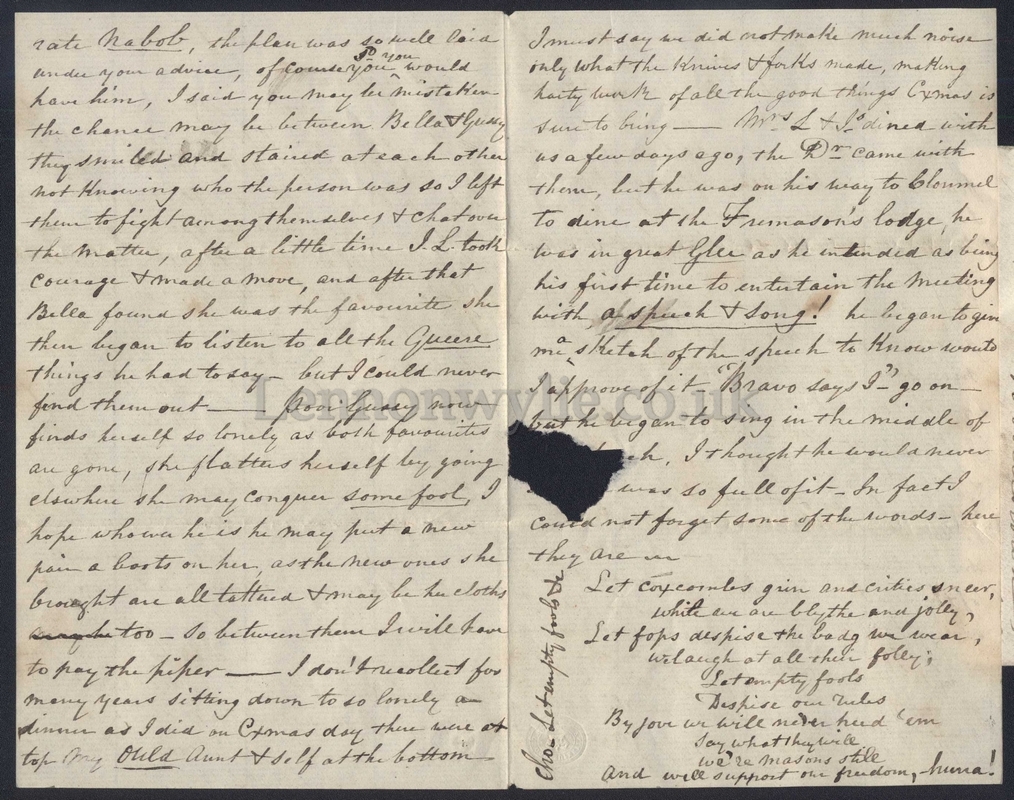 rate Nabob, the plan was so well laid
under your advice, of course you so you would
have him, I said you may be mistaken
the chance may be between Bella & Gussy
they smiled and stared at each other
not Knowing who the person was so I left
them to fight among themselves & chat over
the matter, after a little time J. L. took
courage & made a move, and after that
Bella found she was the favourite she
then began to listen to all the Queere
things he had to say – but I could never
find them out — poor Gussy now
finds herself so lonely as both favourites
are gone, she flatters herself by going
elswhere she may conquer some fool, I
hope whoever he is he may put a new
pair a boots on her, as the new ones she
brought are all tattered & may be her cloths
too – so between them I will have
to pay the piper — I don't recollect for
many years sitting down to so lonely a
dinner as I did on Cxmas day there were at
top My Ould Aunt & self at the bottom
I must say we did not make much noise
only what the Knives & forks made, making
harty work of all the good things Cxmas is
sure to bring — Mrs L & Jo dined with
us a few days ago, the Dr came with
them, but he was on his way to Clonmel
to dine at the Freemason's lodge, he
was in great Glee as he intended as being
his first time to entertain the meeting
with a speech & song! he began to give
me a sketch of the speech to Know would
I approve of it – "Bravo says I" go on –
but he began to sing in the middle of
ch, I thought he would never
was so full of it – In fact I
could not forget some of the words – here
they are
Let coxcombs grin and critics sneer,
while we are blythe and jolly,
Let fops despise the badg we wear,
we laugh at all their folly;
Let empty fools
Despise our rules
By jove we will never heed 'em
Say what they will
we're masons still
And will support our freedom, hurra!
Cho – Let empty fools &c
Lennonwylie.co.uk